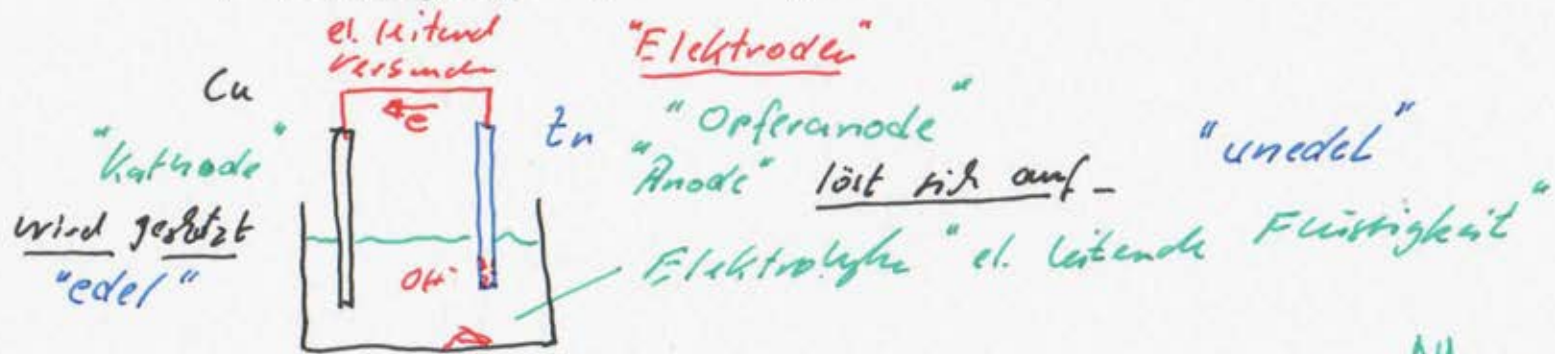 el. leitend
verbunden
"Elektroden"
Cu
e
Zn
"Opferanode"
"unedel"
"Kathode"
"Anode" löst sich auf -
wird geschützt
"edel"
OH⁻
Elektrolyte "el. leitende Flüssigkeit"